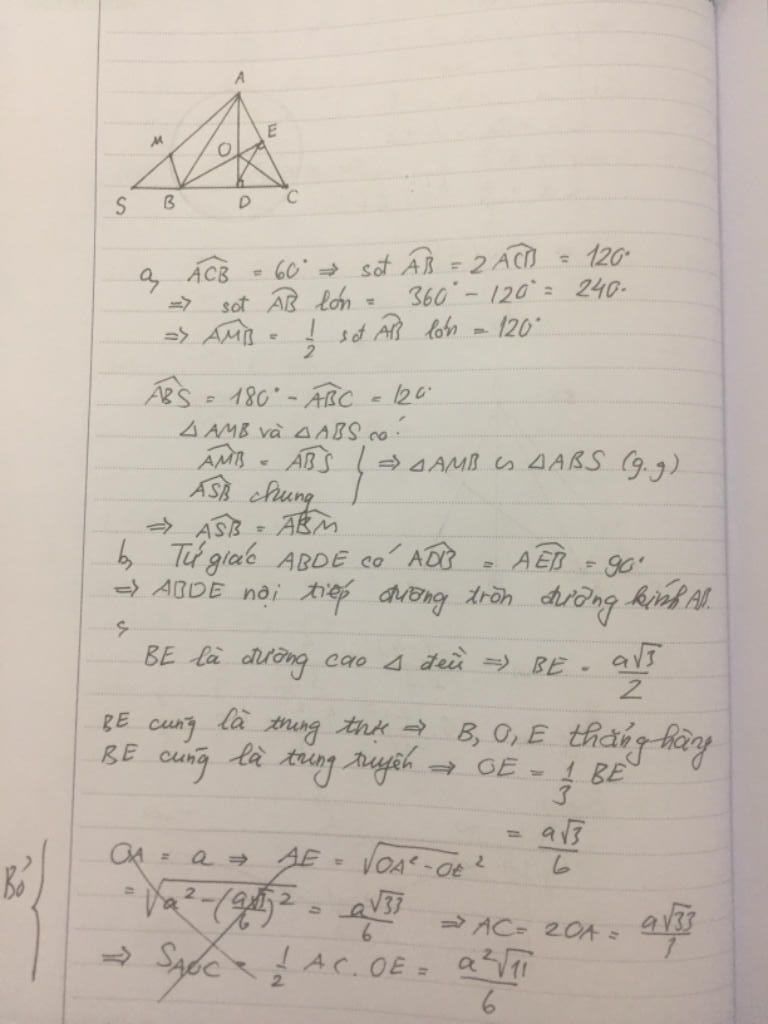 A
M
E
O
S
B
D
C
a, ACB = 60° ⇒ sđt AB = 2 ACB = 120°
⇒ sđt AB lớn = 360° - 120° = 240°
⇒ AMB = 1/2 sđt AB lớn = 120°
ABS = 180° - ABC = 120°
△ AMB và △ ABS có:
AMB = ABS } ⇒ △AMB ∽ △ABS (g.g)
ASB chung
⇒ ASB = ABM
b, Tứ giác ABDE có ADB = AEB = 90°
⇒ ABDE nội tiếp đường tròn đường kính AB.
BE là đường cao △ đều ⇒ BE = a√3/2
BE cũng là trung trực ⇒ B, O, E thẳng hàng
BE cũng là trung tuyến ⇒ OE = 1/3 BE
= a√3/6
OA = a ⇒ AE = √(OA² - OE²)
= √(a² - (a√3/6)²) = a√33/6 ⇒ AC = 2OA = a√33/
Bỏ {
⇒ SAOC = 1/2 AC. OE = a²√11/6